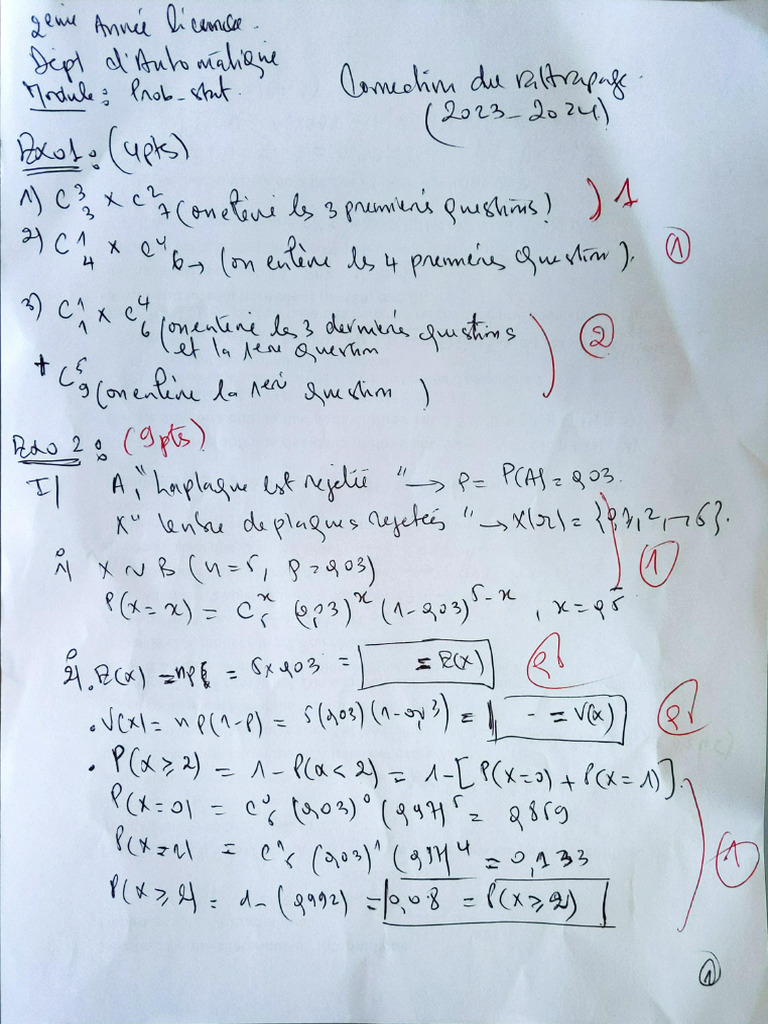 2ème Année Licence.
Dépt d'Automatique
Module: Prob-stat.
Correction du rattrapage.
(2023-2024)
Exo1: (4pts)
1) C³₃ × C²₇ (on enlève les 3 premières questions) ) 1
2) C¹₄ × C⁴₆ → (on enlève les 4 premières question). ①
3) C¹₁ × C⁴₆ (on enlève les 3 dernières questions
et la 1ère question
②
+ C⁵₉ (on enlève la 1erè question)
Exo 2: (9pts)
I/ A "La plaque est rejetée" → p = P(A) = 0,03.
X "le nbre de plaques rejetées" → X(Ω) = {0,1,2,→5}.
1) X ~ B (n=5, p=0,03) ①
P(X=x) = C^x_5 (0,03)^x (1-0,03)^{5-x}, x=0,5
2). E(X) = np = 5×0,03 = = E(X) 0,5
. V(X) = n p(1-p) = 5(0,03)(1-0,03) = - = V(X) 0,5
. P(X ≥ 2) = 1 - P(X < 2) = 1 - [P(X=0) + P(X=1)].
P(X=0) = C⁰₅ (0,03)⁰ (0,97)⁵ = 0,859
P(X=1) = C¹₅ (0,03)¹ (0,97)⁴ = 0,133 ①
P(X ≥ 2) = 1 - (0,992) = 0,08 = P(X ≥ 2)
①